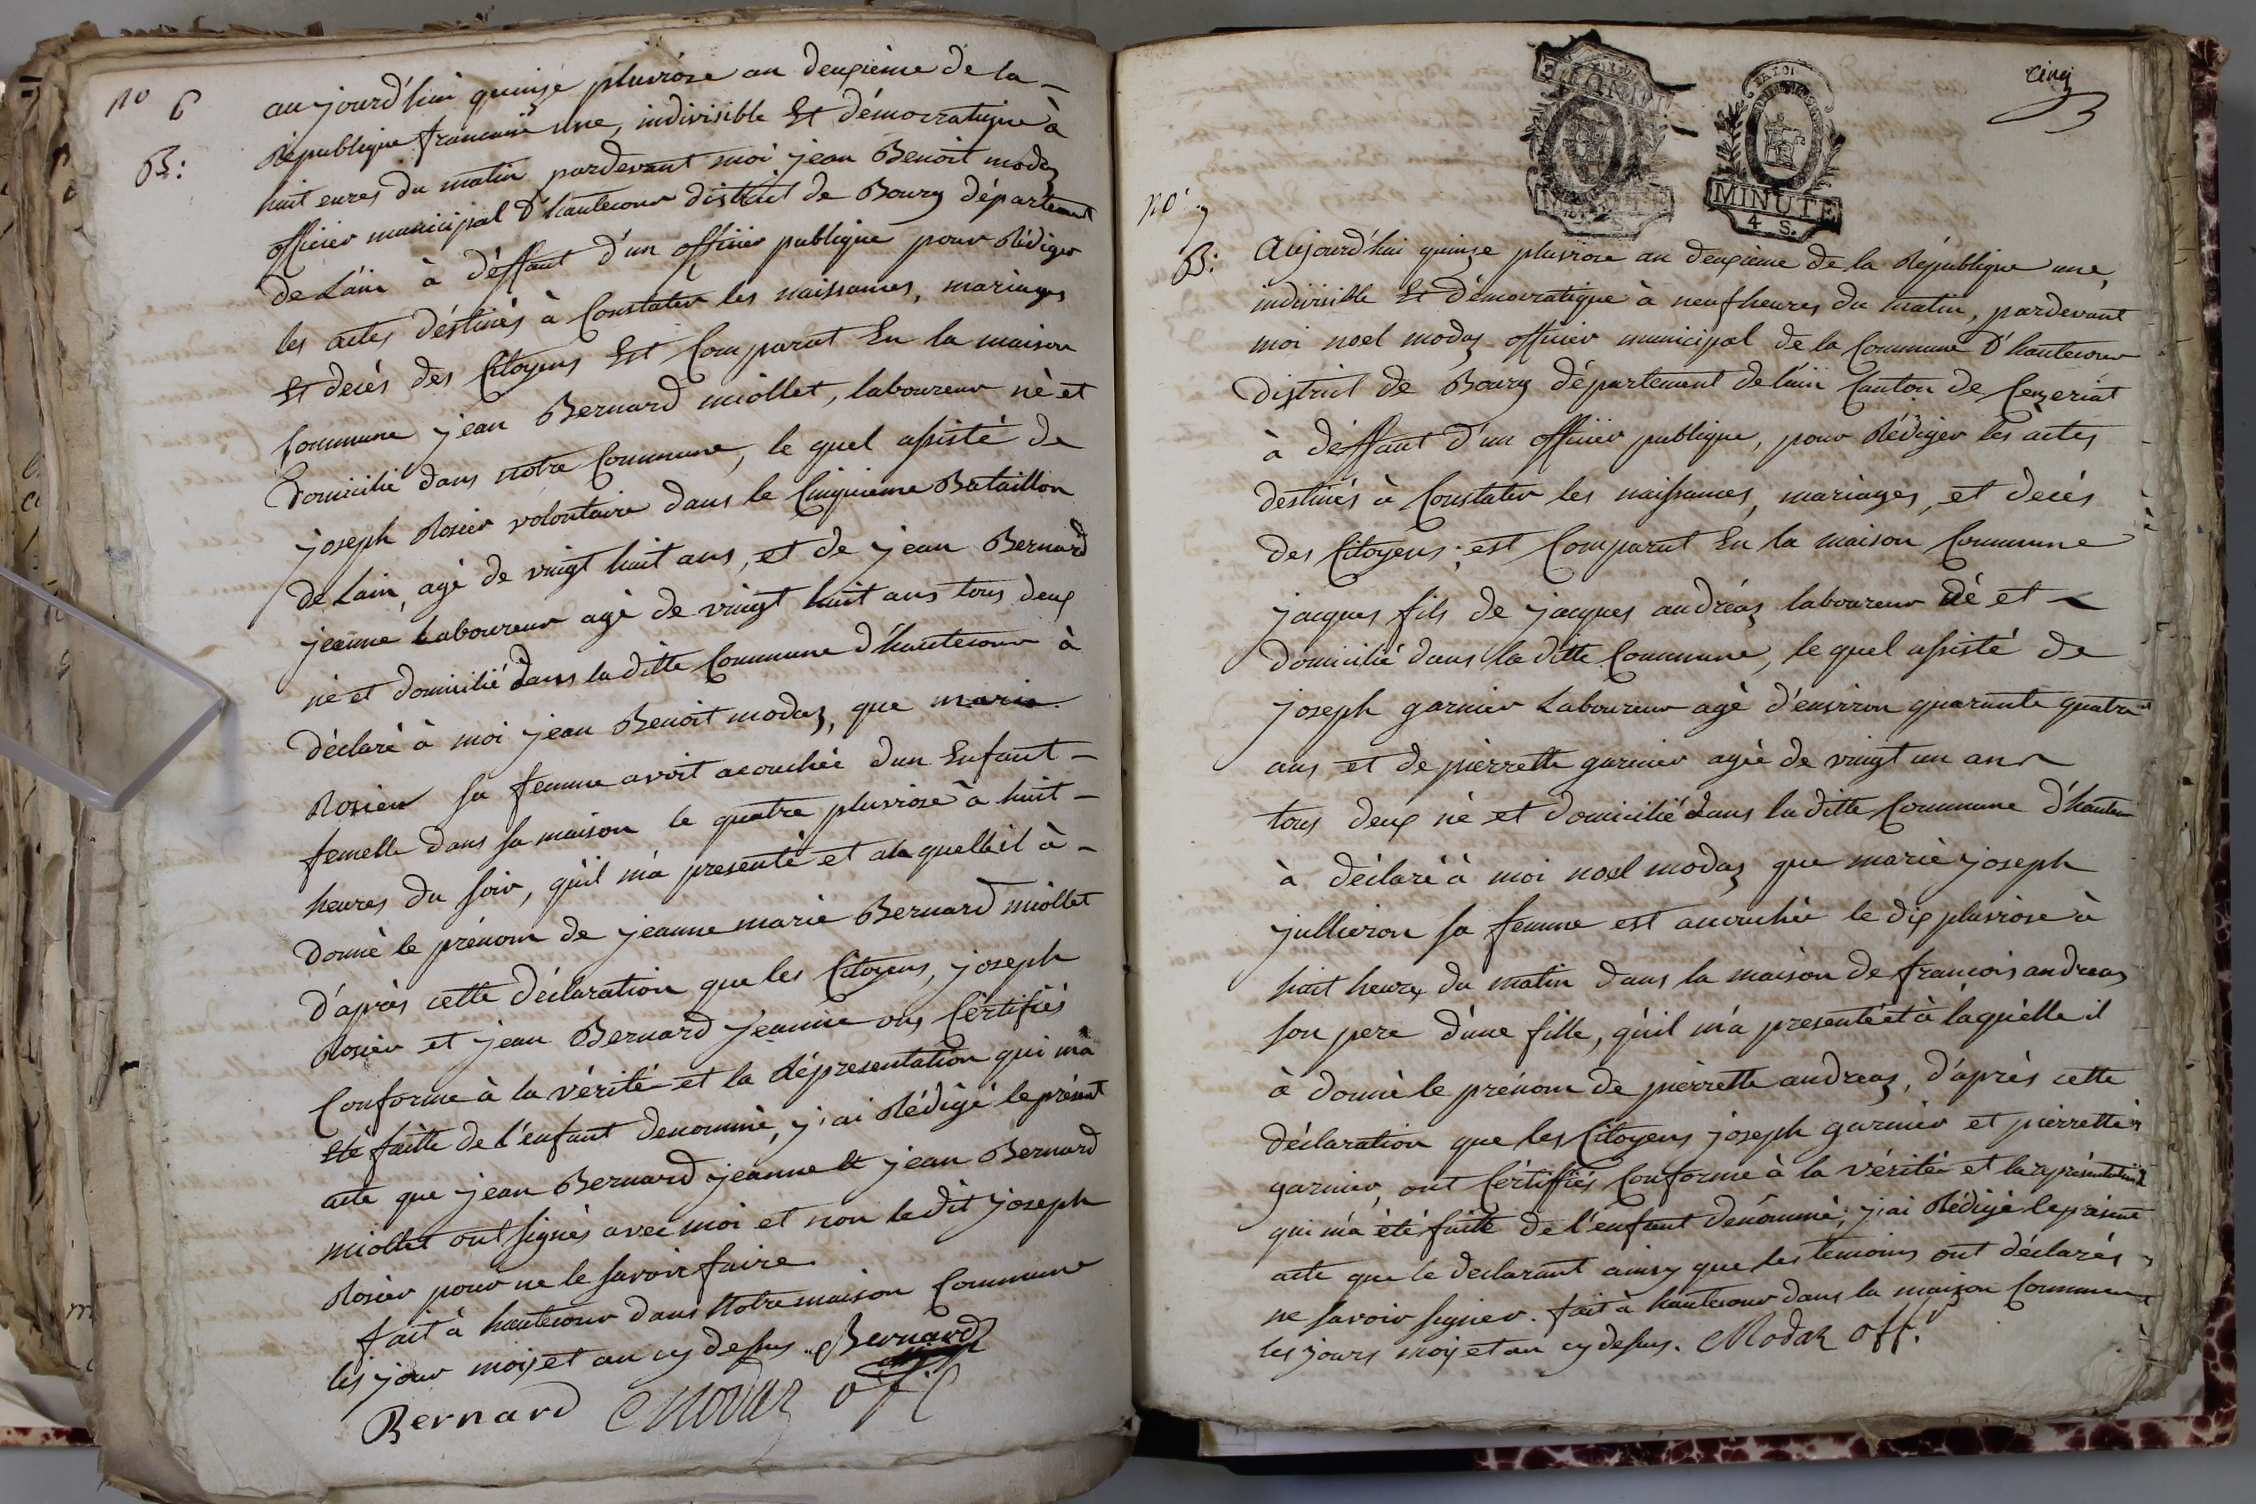 no 6
B:
aujourd'hui quinze pluviose an deuxieme de la
République francaise une, indivisible Et démocratique à
huit eures du matin pardevant moi jean Benoit modaz
officier municipal d'hautecour district de Bourg département
de Lain à déffaut d'un officier publique pour Rédiger
les actes déstinés à Constater les naissances, mariages
Et decés des Citoyens Est Comparut En la maison
Commune jean Bernard miollet, laboureur né et
Domicilié dans notre Commune, le quel assisté de
joseph Rosier volontaire dans le Cinquieme Bataillon
de Lain, agé de vingt huit ans, et de jean Bernard
jeanne Laboureur agé de vingt huit ans tous deux
né et domicilié dans la ditte Commune d'hautecour à
déclaré à moi jean Benoit modaz, que marie
Rosier sa femme avoit acouchée d'un Enfant
femelle dans sa maison le quatre pluviose à huit
heures du soir, qu'il m'a presenté et a la quelle il à
donné le prénom de jeanne marie Bernard miollet
d'après cette déclaration que les Citoyens, joseph
Rosier et jean Bernard jeanne ons Certifiés
Conforme à la vérité et la Répresentation qui m'a
Eté faitte de l'enfant denommé, j'ai Rédigé le présent
acte que jean Bernard jeanne et jean Bernard
miollet ont signés avec moi et non le dit joseph
Rosier pour ne le savoir faire
fait à hautecour dans Notre maison Commune
les jour mois et an cy dessus. Bernard
Bernard Modaz off.
cinq
MINUTE
4 S.
no 7
B:
Aujourd'hui quinze pluviose an deuxieme de la République une,
indivisible Et démocratique à neuf heures du matin, pardevant
moi noel modaz officier municipal de la Commune d'hautecour
district de Bourg département de l'ain Canton de Cezeriat
à déffaut d'un officier publique, pour Rédiger les actes
destinés à Constater les naissances, mariages, et decés
des Citoyens; est Comparut En la maison Commune
jacques fils de jacques andréaz laboureur né et
domicilié dans la ditte Commune, le quel assisté de
joseph garnier Laboureur agé d'environ quarante quatre
ans et de pierrette garnier agée de vingt un ans
tous deux né et domicilié dans la ditte Commune d'hautecour
à déclaré à moi noel modaz que marie joseph
jullieron sa femme est acouchée le dix pluviose à
huit heures du matin dans la maison de francois andreaz
son pere d'une fille, qu'il m'a presenté et à laquelle il
à donné le prénom de pierrette andreaz, d'après cette
déclaration que les Citoyens joseph garnier et pierrette
garnier, ont Certiffiés Conforme à la vérité et la représentation
qui m'a été faitte de l'enfant denommé; j'ai Rédigé le présent
acte que le declarant ainsy que les temoins ont déclarés
ne savoir signer. fait à hautecour dans la maison Commune
les jours mois et an cy dessus. Modaz off.